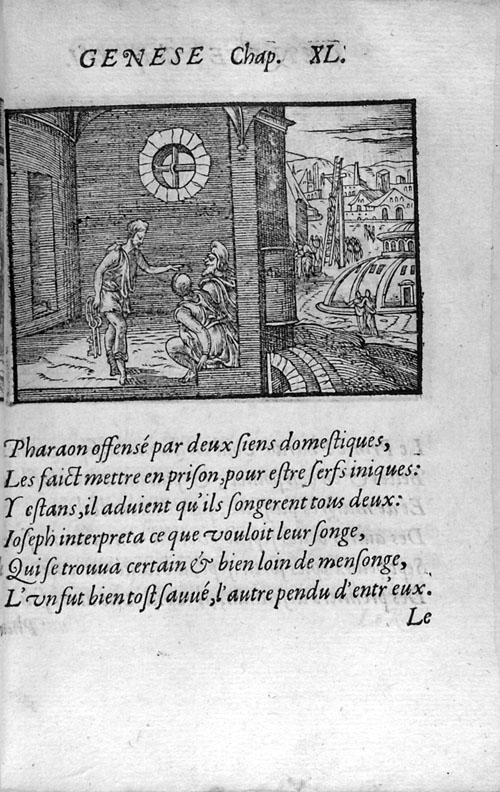 GENESE Chap. XL.
Pharaon offensé par deux siens domestiques,
Les faict mettre en prison, pour estre serfs iniques:
Y estans, il advient qu'ils songerent tous deux:
Ioseph interpreta ce que vouloit leur songe,
Qui se trouva certain & bien loin de mensonge,
L'vn fut bien tost sauvé, l'autre pendu d'entr'eux.
Le